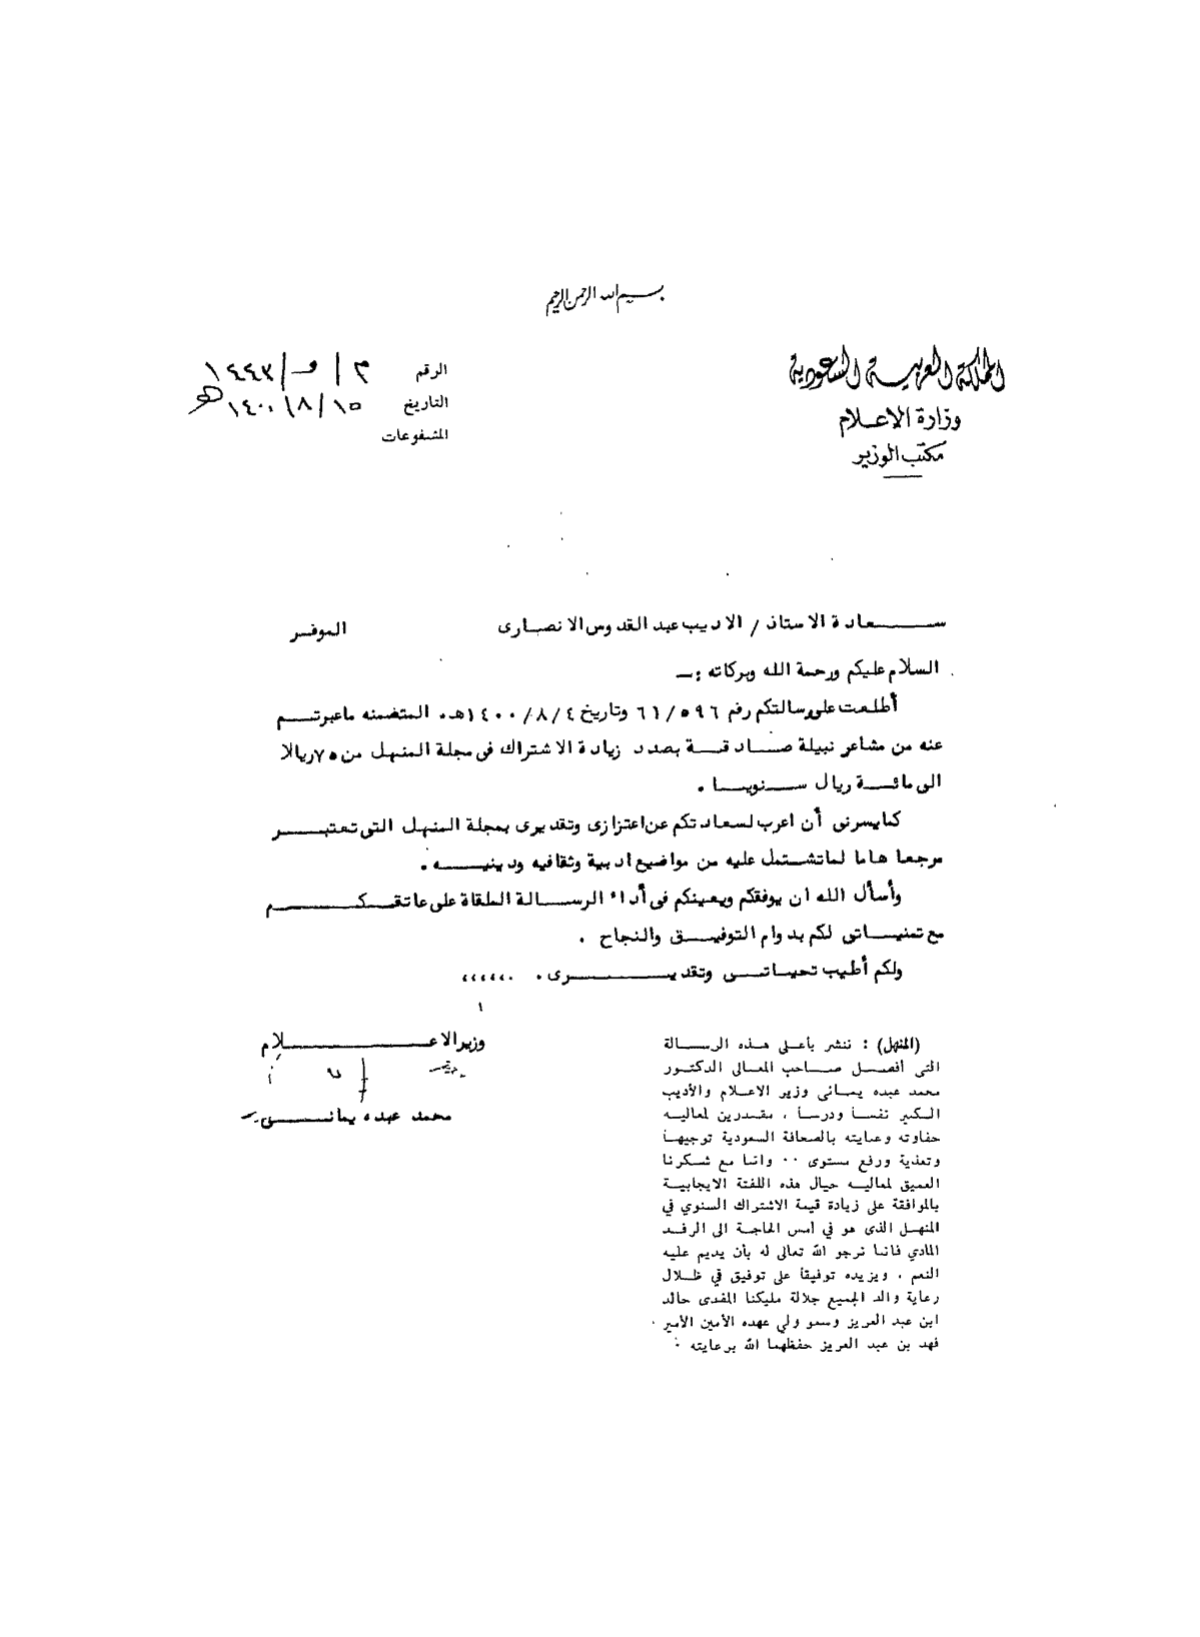 بسم الله الرحمن الرحيم
المملكة العربية السعودية
وزارة الاعلام
مكتب الوزير
الرقم م / و / ١٤٤٣
التاريخ ١٥ / ٨ / ١٤٠٠ هـ
المشفوعات
سعادة الاستاذ / الاديب عبد القدوس الانصارى الموقر
السلام عليكم ورحمة الله وبركاته :ـ
أطلعت على رسالتكم رقم ٦١/٥٩٦ وتاريخ ١٤٠٠/٨/٤هـ. المتضمنه ماعبرتم
عنه من مشاعر نبيلة صادقة بصدد زيادة الاشتراك فى مجلة المنهل من ٧٥ ريالا
الى مائة ريال سنويا .
كما يسرنى أن اعرب لسعادتكم عن اعتزازى وتقديرى بمجلة المنهل التى تعتبر
مرجعا هاما لما تشتمل عليه من مواضيع ادبية وثقافيه ودينيه .
وأسأل الله ان يوفقكم ويعينكم فى أداء الرسالة الملقاة على عاتقكم
مع تمنياتى لكم بدوام التوفيق والنجاح .
ولكم أطيب تحياتى وتقديرى . ،،،،،،
وزير الاعلام
محمد عبده يمانى
(المنهل) : ننشر بأعلى هذه الرسالة
التى أفضل صاحب المعالى الدكتور
محمد عبده يمانى وزير الاعلام والأديب
الكبير نفسا ودرسا ، مقدرين لمعاليه
حفاوته وعنايته بالصحافة السعودية توجيها
وتغذية ورفع مستوى ٠٠ واننا مع شكرنا
العميق لمعاليه حيال هذه اللفتة الايجابية
بالموافقة على زيادة قيمة الاشتراك السنوي في
المنهل الذى هو في أمس الحاجة الى الرفد
المادي فاننا نرجو الله تعالى له بأن يديم عليه
النعم ، ويزيده توفيقا على توفيق في ظلال
رعاية والد الجميع جلالة مليكنا المفدى خالد
ابن عبد العزيز وسمو ولي عهده الأمين الأمير
فهد بن عبد العزيز حفظهما الله برعايته .